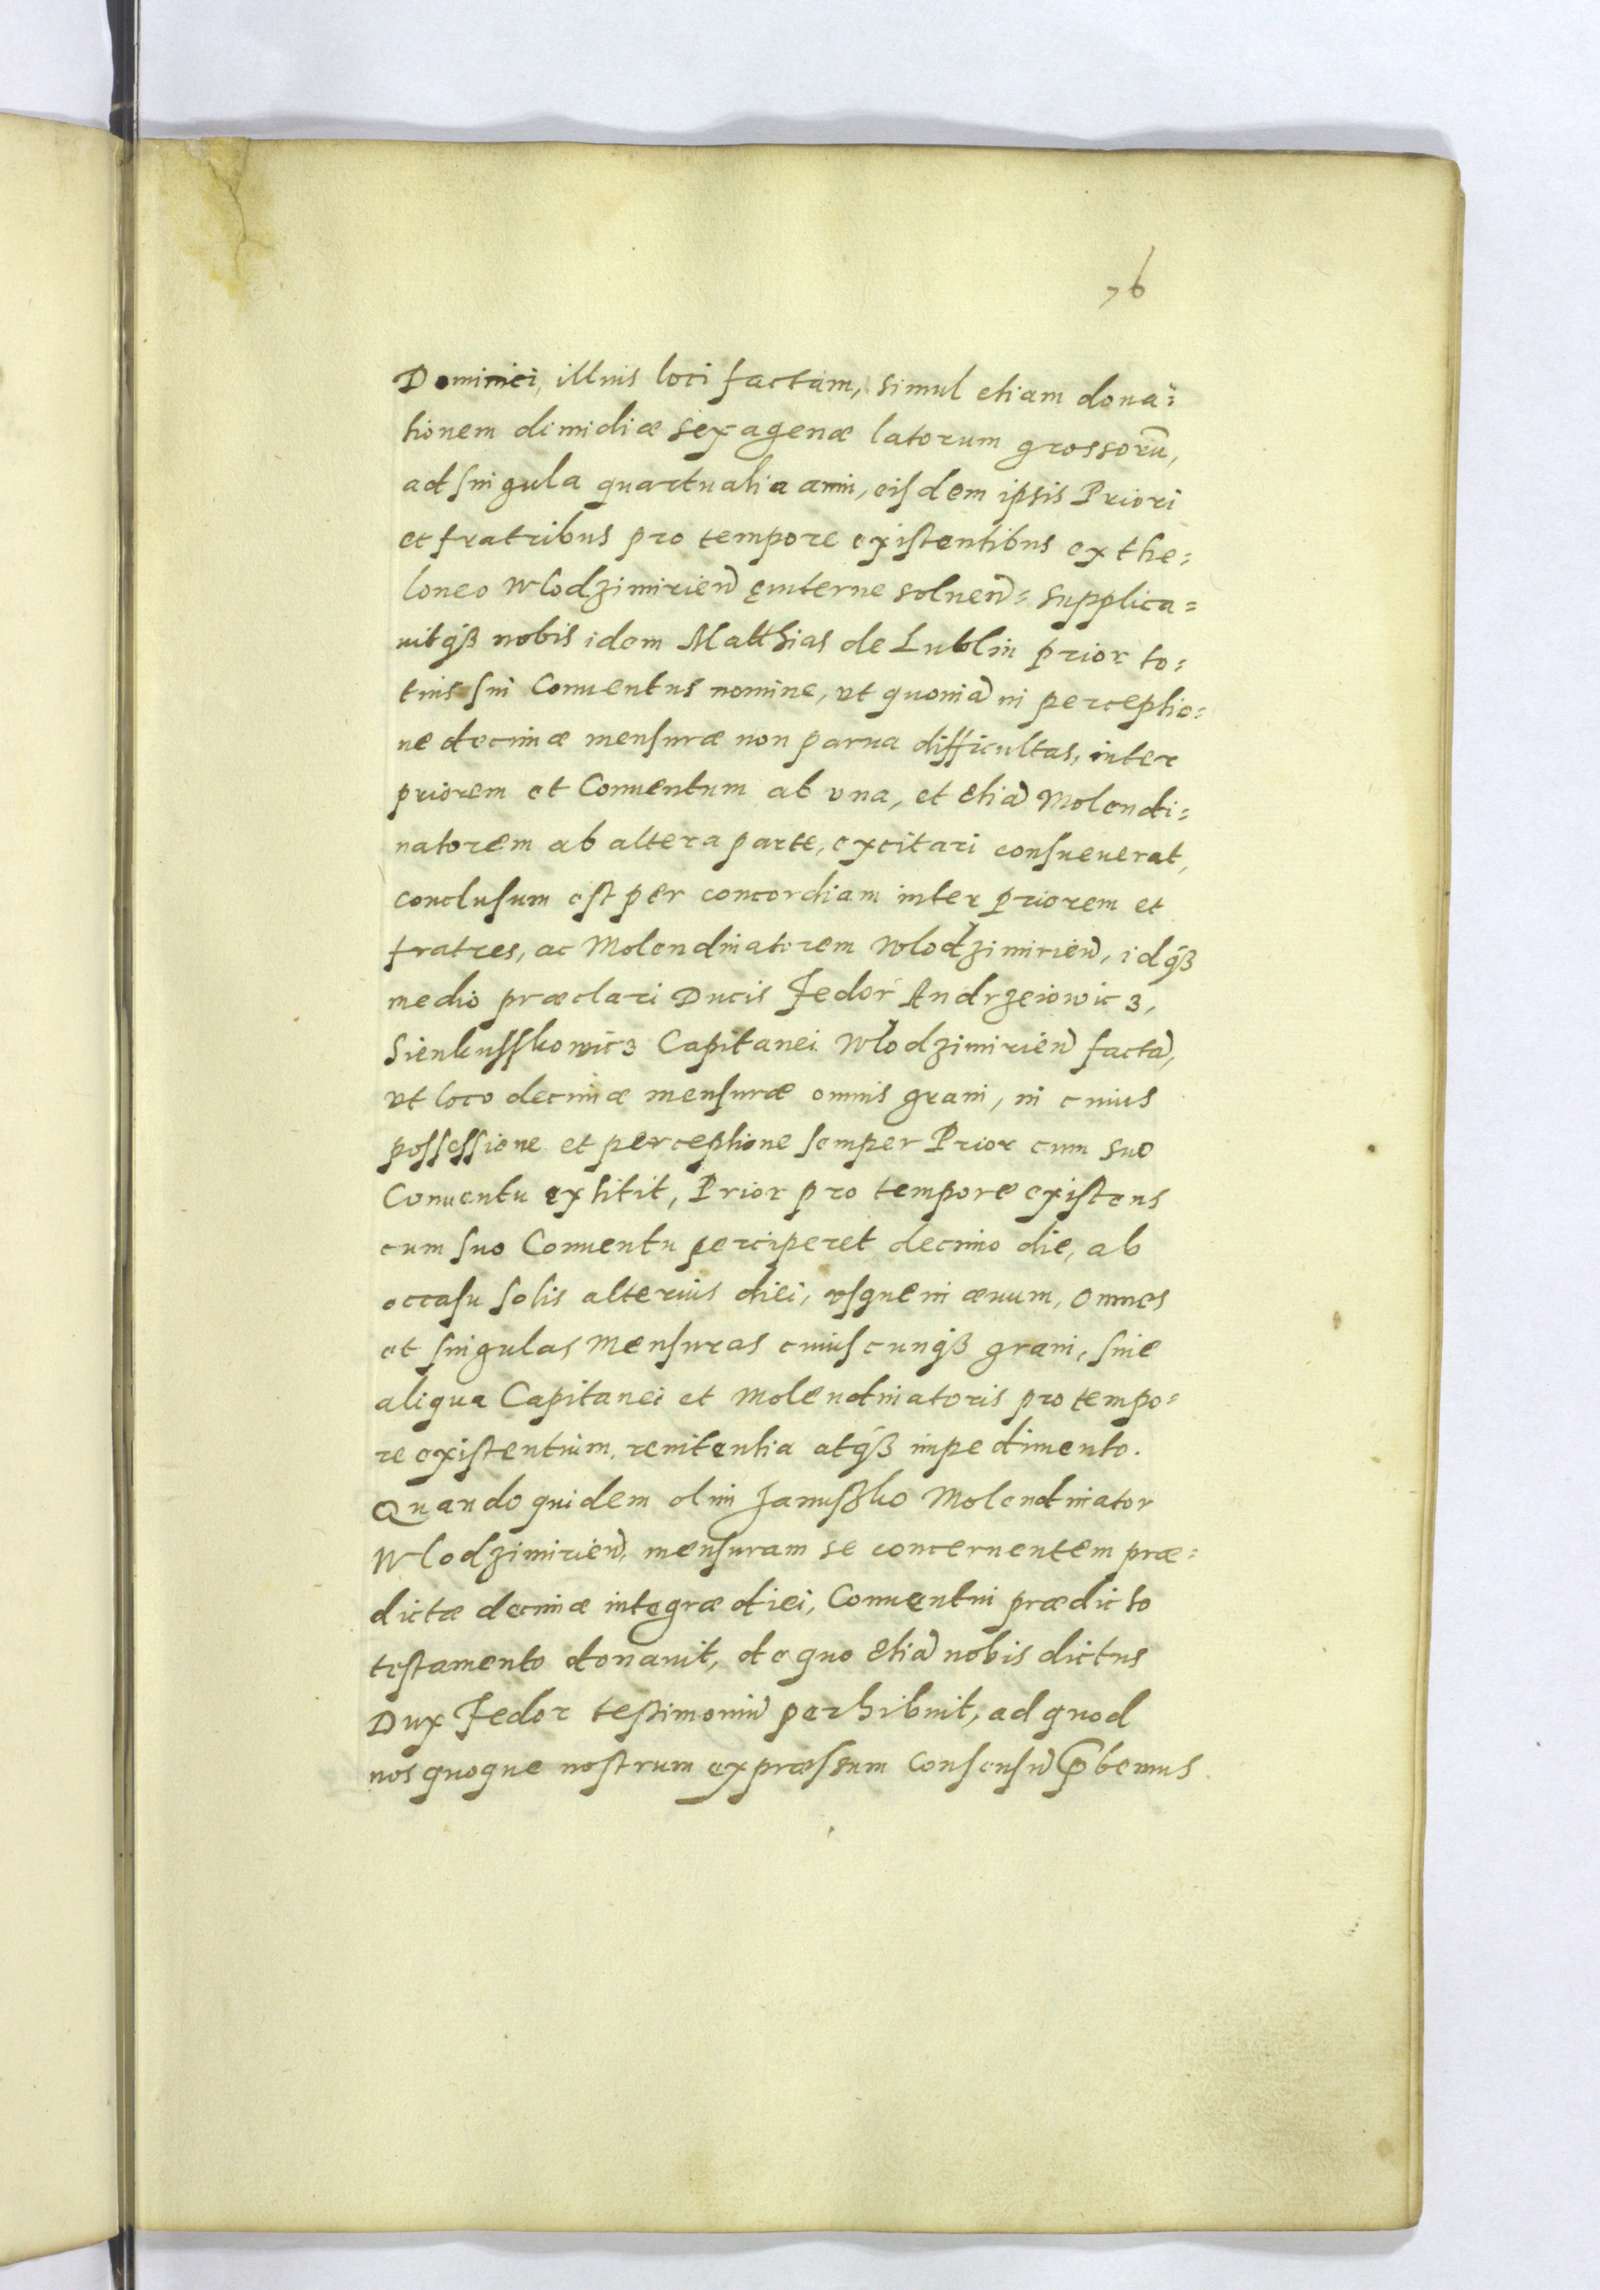 76
Dominici, illius loci factam, simul etiam dona=
tionem dimidiæ sexagenæ latorum grossorũ,
ad singula quartualia anni, eisdem ipsis Priori
et fratribus pro tempore existentibus ex the=
loneo Wlodzimirien̄ ęuiterne soluen̄= supplica=
uitq́ꝫ nobis idem Matthias de Lublin prior to=
tius sui Conuentus nomine, vt quoniā in perceptio=
ne decimæ mensuræ non parua difficultas, inter
priorem et Conuentum ab vna, et etiā Molendi=
natorem ab altera parte, excitari consueuerat,
conclusum est per concordiam inter priorem et
fratres, ac Molendinatorem Wlodzimirien̄, idq́ꝫ
medio præclari Ducis Fedor Andrzeiowicz,
Sienkusskowicz Capitanei Wlodzimirien̄ factā,
vt loco decimæ mensuræ omnis grani, in cuius
possessione et perceptione semper Prior cum suo
Conuentu extitit, Prior pro tempore existens
cum suo Conuentu perciperet decimo die, ab
occasu solis alterius diei, vsque in æuum, omnes
et singulas mensuras cuiuscunq́ꝫ grani, sine
aliqua Capitanei et molendinatoris pro tempo=
re existentium, renitentia atq́ꝫ impedimento.
Quandoquidem olim Januszko Molendinator
Wlodzimirien̄, mensuram se concernentem præ=
dictæ decimæ integræ diei, Conuentui prædicto
testamento donauit, de quo etiā nobis dictus
Dux Fedor testimoniū perhibuit, ad quod
nos quoque nostrum expræssum consensū p̄bemus.